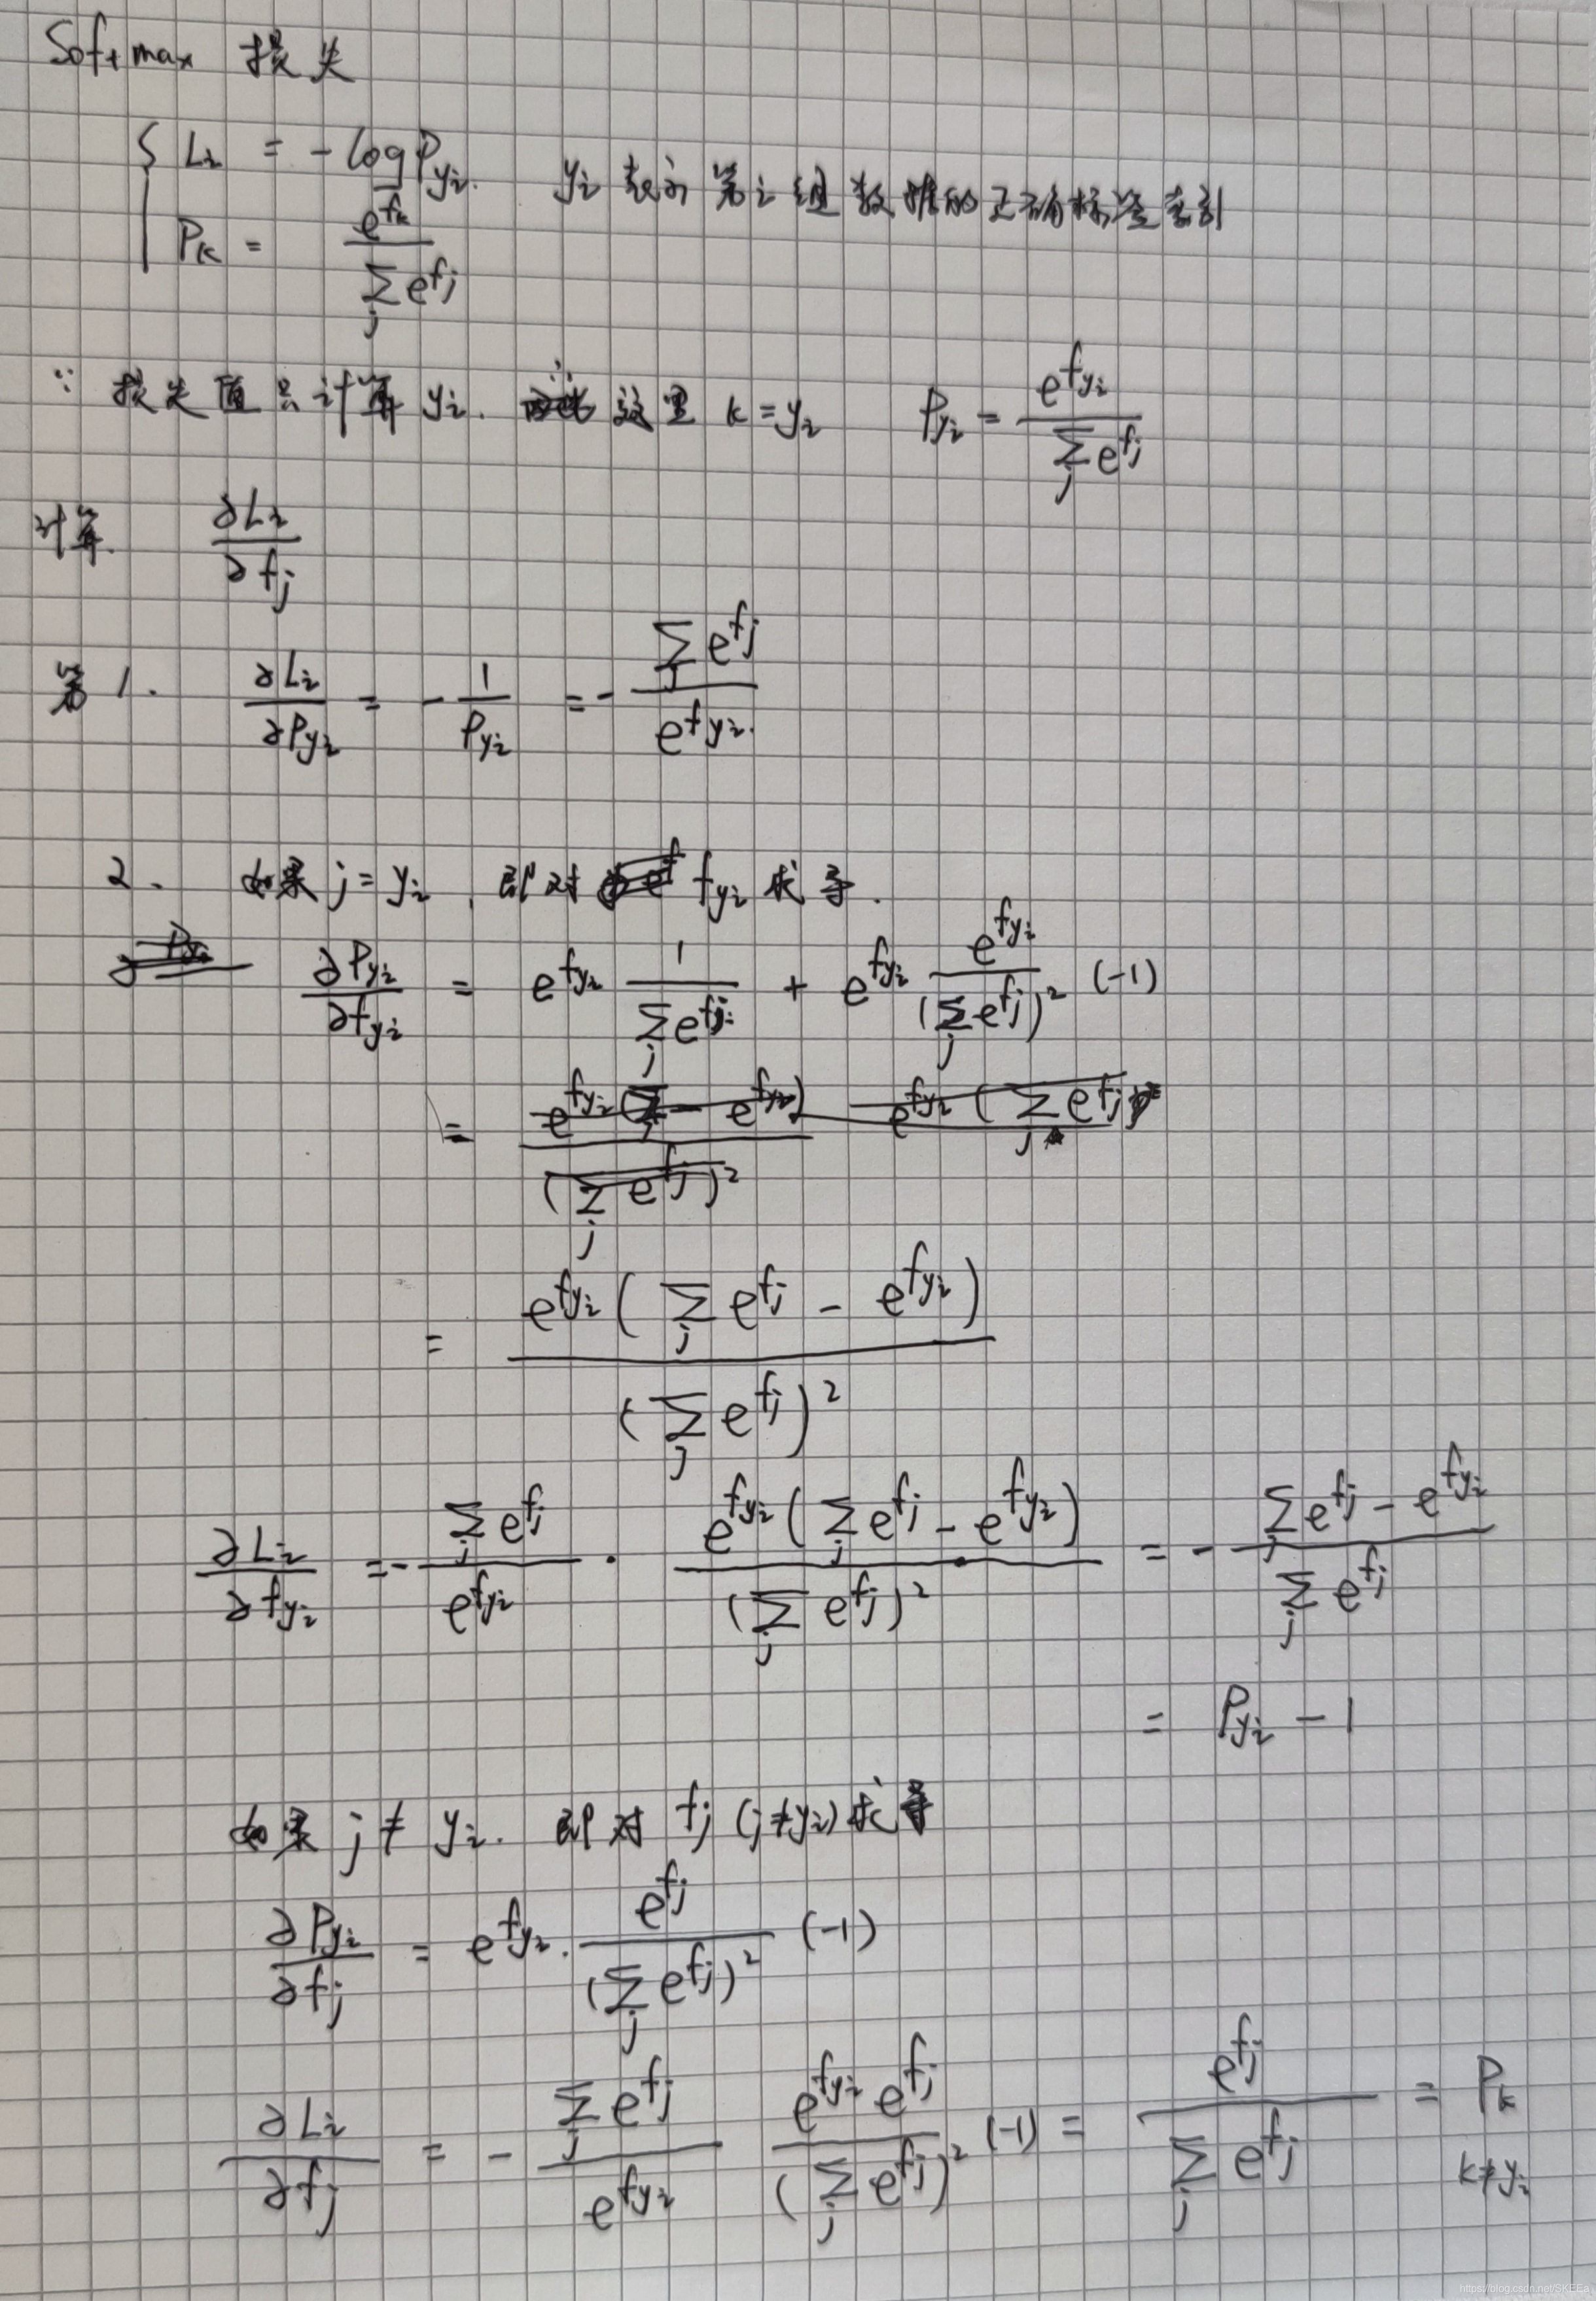 Softmax 损失
L_i = -log P_{y_i} y_i 表示第 i 组数据的正确标签索引
P_k = e^{f_k} / Σ_j e^{f_j}
∵ 损失值只计算 y_i. ∴ 这里 k = y_i P_{y_i} = e^{f_{y_i}} / Σ_j e^{f_j}
计算. ∂L_i / ∂f_j
第 1. ∂L_i / ∂P_{y_i} = - 1 / P_{y_i} = - Σ_j e^{f_j} / e^{f_{y_i}}
2. 如果 j = y_i, 即对 f_{y_i} 求导.
∂P_{y_i} / ∂f_{y_i} = e^{f_{y_i}} 1 / Σ_j e^{f_j} + e^{f_{y_i}} e^{f_{y_i}} / (Σ_j e^{f_j})^2 (-1)
= e^{f_{y_i}} ( Σ_j e^{f_j} - e^{f_{y_i}} ) / ( Σ_j e^{f_j} )^2
∂L_i / ∂f_{y_i} = - Σ_j e^{f_j} / e^{f_{y_i}} · e^{f_{y_i}} ( Σ_j e^{f_j} - e^{f_{y_i}} ) / ( Σ_j e^{f_j} )^2 = - ( Σ_j e^{f_j} - e^{f_{y_i}} ) / Σ_j e^{f_j}
= P_{y_i} - 1
如果 j ≠ y_i. 即对 f_j (j≠y_i) 求导
∂P_{y_i} / ∂f_j = e^{f_{y_i}} · e^{f_j} / ( Σ_j e^{f_j} )^2 (-1)
∂L_i / ∂f_j = - Σ_j e^{f_j} / e^{f_{y_i}} e^{f_{y_i}} e^{f_j} / ( Σ_j e^{f_j} )^2 (-1) = e^{f_j} / Σ_j e^{f_j} = P_k
k≠y_i
https://blog.csdn.net/SKEEa